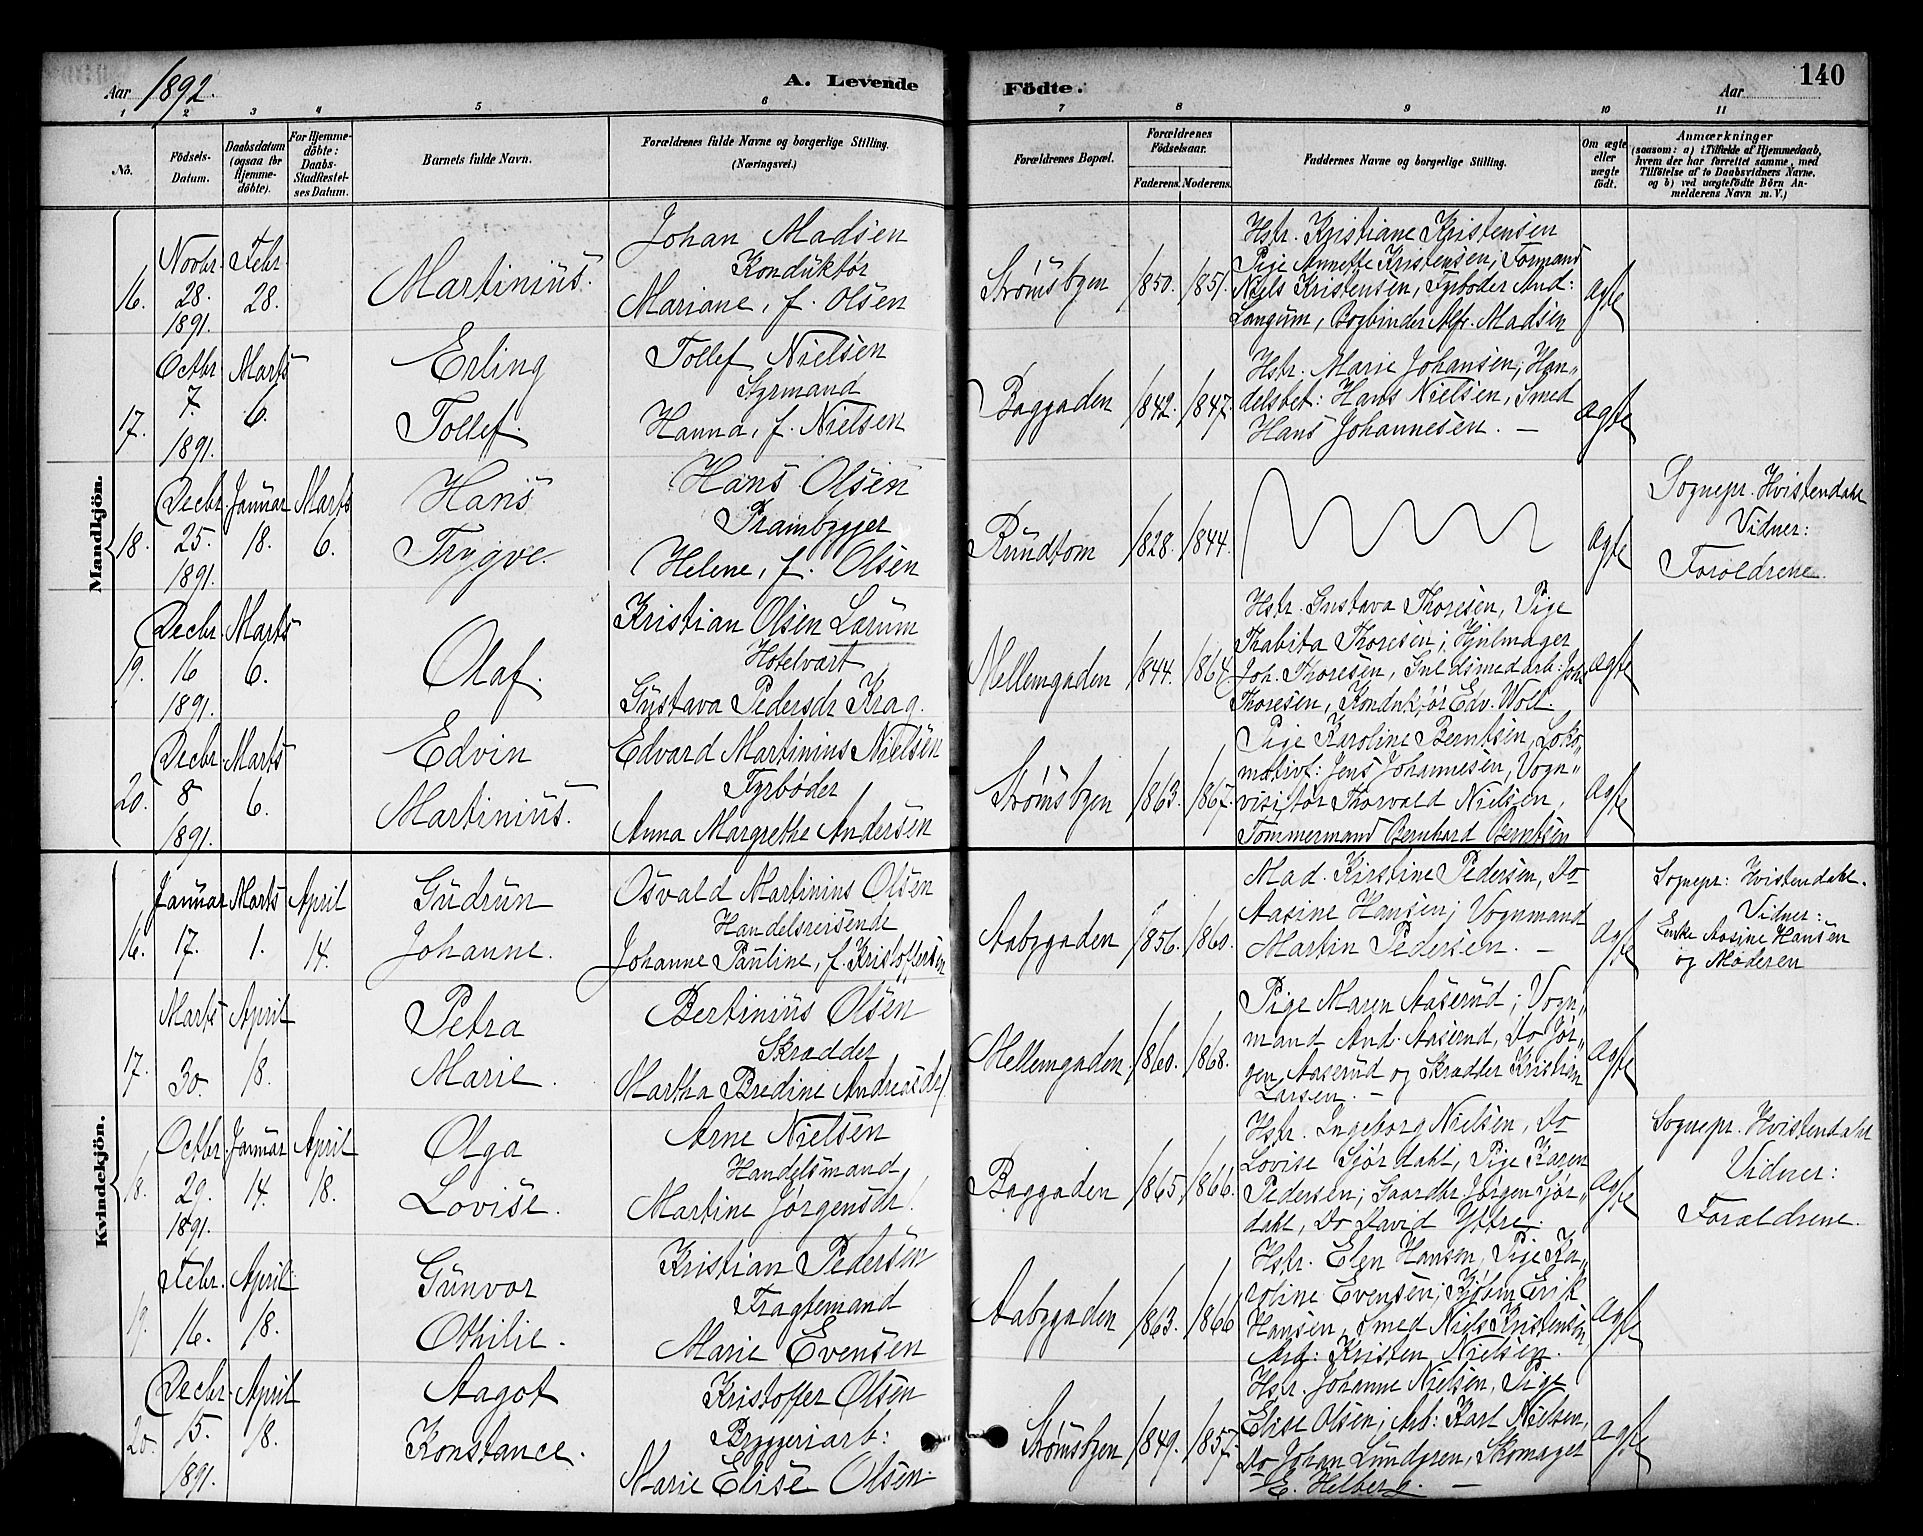 Aar 1892.
A. Levende Födte.
Aar
140
1 2 3 4 5 6 7 8 9 10 11
No.
Födsels-Datum.
Daabsdatum (ogsaa for Hjemmedöbte).
For Hjemmedöbte: Daabs-Stadfæstelses Datum.
Barnets fulde Navn.
Forældrenes fulde Navne og borgerlige Stilling. (Næringsvei.)
Forældrenes Bopæl.
Forældrenes Födselsaar.
Faderens. Moderens.
Faddernes Navne og borgerlige Stilling.
Om ægte eller uægte födt.
Anmærkninger
(saasom: a) i Tilfælde af Hjemmedaab, hvem der har forrettet samme, med Tilföielse af to Daabsvidners Navne, og b) ved uægtefödte Börn Anmelderens Navn m. V.)
Mandkjön.
16.
Novbr. 28. 1891.
Febr. 28.
Martinius.
Johan Madsen
Konduktör
Mariane, f. Olsen
Strømsbyen
1850. 1851.
Hstr. Kristiane Kristensen
Pige Annette Kristensen; Formand
Niels Kristensen, Fyrbøder And:
Langum, Bogbinder Alfr. Madsen
ægte
17.
Octbr 7. 1891.
Marts 6.
Erling
Tollef.
Tollef Nielsen
Styrmand
Hanna, f. Nielsen
Baggaden
1842. 1847.
Hstr. Marie Johansen; Han„
delsbet: Hans Nielsen, Smed
Hans Johannesen. —
ægte
18.
Decbr. 25. 1891.
Januar 18.
Marts 6.
Hans
Trygve.
Hans Olsen
Prambygger
Helene, f. Olsen
Rundtom
1828. 1844.
ægte
Sognepr. Hvistendahl
Vidner:
Forældrene.
19.
Decbr. 16 1891.
Marts 6.
Olaf.
Kristian Olsen Larum
Hotelvært
Gustava Pedersdr Krag.
Mellemgaden
1844. 1864
Hstr. Gustava Thoresen, Pige
Thabita Thoresen; Hjulmager
Joh. Thoresen, Guldsmedarb: Johs
Thoresen, Konduktør Edv. Wold.
ægte
20.
Decbr. 8 1891.
Marts 6.
Edvin
Martinius.
Edvard Martinius Nielsen
Fyrbøder
Anna Margrethe Andersen
Strømsbyen
1863. 1867.
Pige Karoline Berntsen, Loko„
motivf: Jens Johannesen, Vogn„
visitør Thorvald Nielsen,
Tømmermand Bernhard Berntsen
ægte
Kvindekjön.
16.
Januar 17.
Marts 1.
April 14.
Gudrun
Johanne.
Osvald Martinius Olsen
Handelsreisende
Johanne Pauline, f. Kristoffersen
Aabygaden
1856. 1860.
Mad. Kirstine Pedersen, Do
Aasine Hansen; Vognmand
Martin Pedersen. —
ægte
Sognepr: Hvistendahl.
Vidner:
Enke Aasine Hansen
og Moderen
17.
Marts 30.
April 18.
Petra
Marie.
Bertinius Olsen
Skrædder
Martha Bredine Andreasdr
Mellemgaden.
1860. 1868.
Pige Maren Aaserud; Vogn„
mand And. Aaserud, Do Jør„
gen Aaserud og Skrædder Kristian
Larsen. —
ægte
18.
Octbr. 29. 1891.
Januar 14.
April 18.
Olga
Lovise.
Arne Nielsen
Handelsmand
Martine Jørgensdr
Baggaden
1865. 1866.
Hstr. Ingeborg Nielsen, Do
Lovise Gjørdahl, Pige Karen
Pedersen; Gaardbr Jørgen Gjør„
dahl, Do David Yttre.
ægte
Sognepr. Hvistendahl
Vidner:
Forældrene.
19.
Febr. 16.
April 18.
Gunvor
Othilie.
Kristian Pedersen
Fragtemand
Marie Evensen
Aabygaden
1863. 1866
Hstr. Elen Hansen, Pige Ka„
roline Evensen; Kjøbm Erik
Hansen, Smed Niels Kristensen
Arb: Kristen Nielsen.
ægte
20.
Decbr. 15. 1891.
April 18.
Aagot
Konstance.
Kristoffer Olsen
Bryggeriarb:
Marie Elise Olsen
Strømsbyen
1849. 1857.
Hstr. Johanne Nielsen, Pige
Elise Olsen; Arb: Karl Nielsen,
Do Johan Lundgren, Skomager
E. Helberg. —
ægte